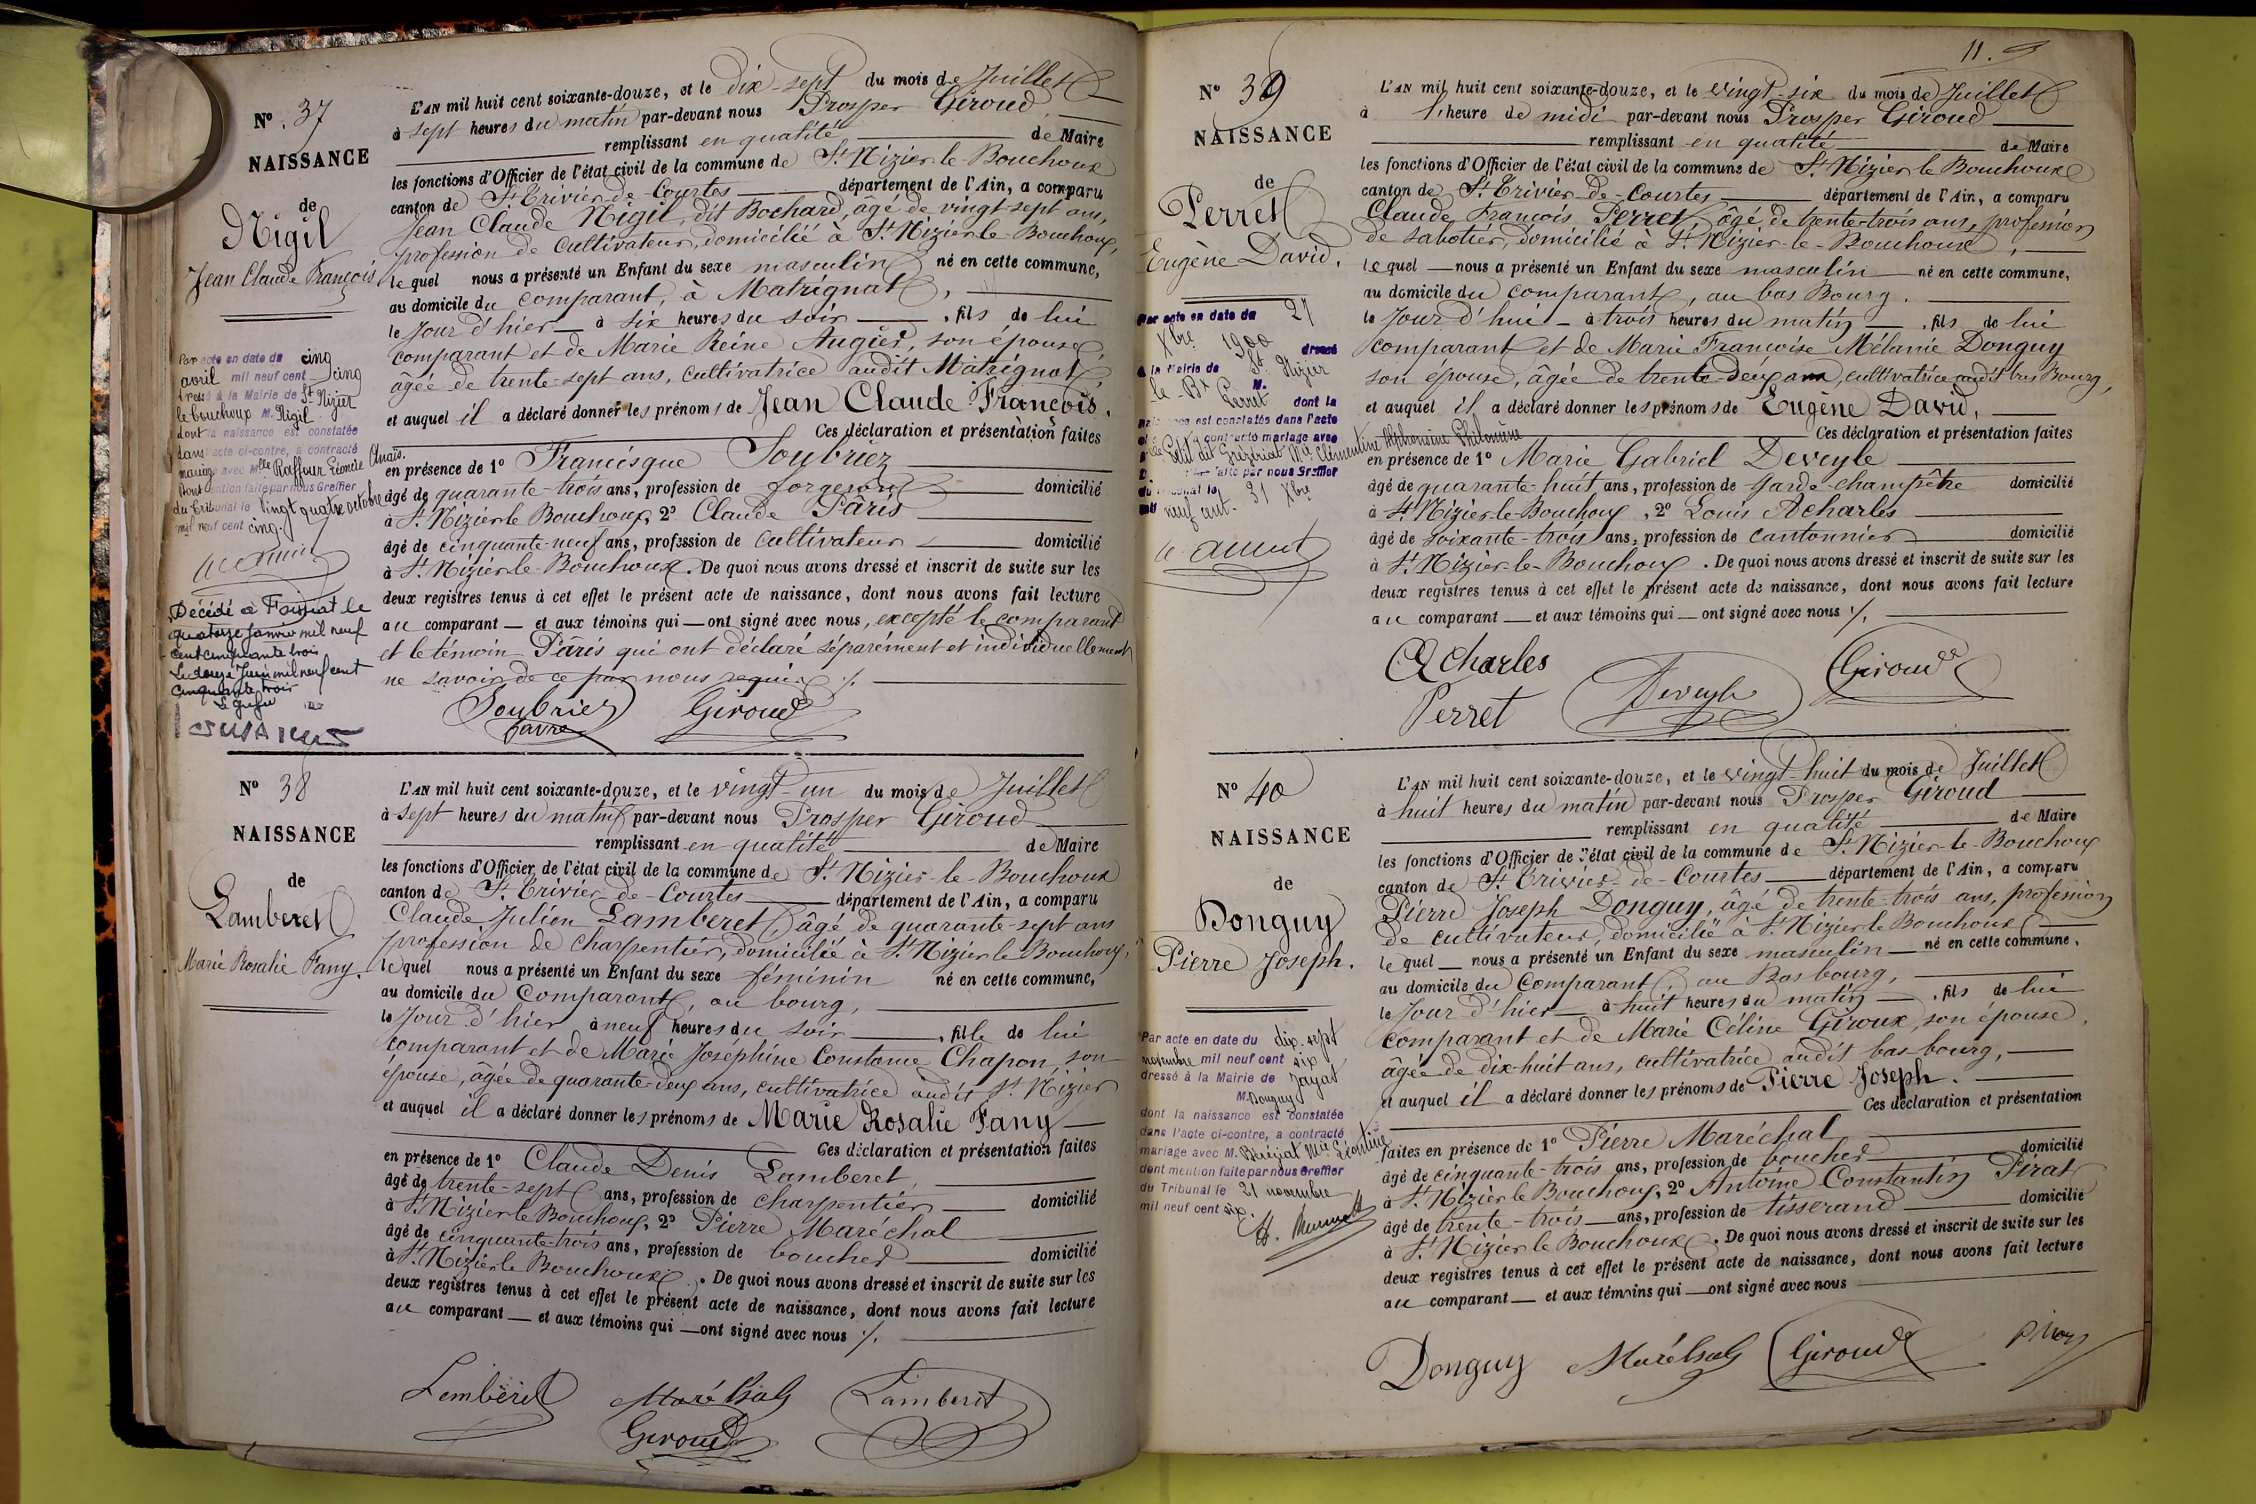 Nº 37
NAISSANCE
de
Nigil
Jean Claude François
Par acte en date du cinq
avril mil neuf cent cinq
dressé à la Mairie de St Nizier
le bouchoux M. Nigil
dont la naissance est constatée
dans l'acte ci-contre, a contracté
mariage avec Mlle Raffour Léoncie Anaïs.
dont mention faite par nous Greffier
du Tribunal le vingt quatre octobre
mil neuf cent cinq.
Décédé à Foissiat le
quatorze janvier mil neuf
cent cinquante trois
Le douze Juin mil neuf cent
cinquante trois
Le Greffier
L'AN mil huit cent soixante-douze, et le dix-sept du mois de Juillet
à sept heures du matin par-devant nous Prosper Giroud
remplissant en qualité de Maire
les fonctions d'Officier de l'état civil de la commune de St Nizier-le-Bouchoux
canton de St Trivier-de-Courtes département de l'Ain, a comparu
Jean Claude Nigil, dit Bochard, âgé de vingt-sept ans,
profession de cultivateur, domicilié à St Nizier-le-Bouchoux,
lequel nous a présenté un Enfant du sexe masculin né en cette commune,
au domicile du comparant, à Matrignat,
le Jour d'hier à six heures du soir, fils de lui
comparant et de Marie Reine Augier, son épouse,
âgée de trente-sept ans, cultivatrice audit Matrignat,
et auquel il a déclaré donner les prénoms de Jean Claude François.
Ces déclaration et présentation faites
en présence de 1º Francisque Soubriez
âgé de quarante-trois ans, profession de forgeron domicilié
à St Nizier le Bouchoux, 2º Claude Pâris
âgé de cinquante-neuf ans, profession de cultivateur domicilié
à St Nizier-le-Bouchoux. De quoi nous avons dressé et inscrit de suite sur les
deux registres tenus à cet effet le présent acte de naissance, dont nous avons fait lecture
au comparant et aux témoins qui ont signé avec nous, excepté le comparant
et le témoin Pâris qui ont déclaré séparément et individuellement
ne savoir de ce par nous requis ./.
Soubriez Giroud
Favre
Nº 38
NAISSANCE
de
Lamberet
Marie Rosalie Fany.
L'AN mil huit cent soixante-douze, et le vingt-un du mois de Juillet
à sept heures du matin par-devant nous Prosper Giroud
remplissant en qualité de Maire
les fonctions d'Officier de l'état civil de la commune de St Nizier-le-Bouchoux
canton de St Trivier-de-Courtes département de l'Ain, a comparu
Claude Julien Lamberet, âgé de quarante-sept ans
profession de charpentier, domicilié à St Nizier le Bouchoux,
lequel nous a présenté un Enfant du sexe féminin né en cette commune,
au domicile du comparant, au bourg,
le Jour d'hier à neuf heures du soir, fille de lui
comparant et de Marie Joséphine Constance Chapon, son
épouse, âgée de quarante-deux ans, cultivatrice audit St Nizier
et auquel il a déclaré donner les prénoms de Marie Rosalie Fany
Ces déclaration et présentation faites
en présence de 1º Claude Denis Lamberet,
âgé de trente-sept ans, profession de charpentier domicilié
à St Nizier le Bouchoux, 2º Pierre Maréchal
âgé de cinquante-trois ans, profession de boucher domicilié
à St Nizier le Bouchoux. De quoi nous avons dressé et inscrit de suite sur les
deux registres tenus à cet effet le présent acte de naissance, dont nous avons fait lecture
au comparant et aux témoins qui ont signé avec nous ./.
Lamberet Maréchal Lamberet
Giroud
11.
Nº 39
NAISSANCE
de
Perret
Eugène David.
Par acte en date du 27
Xbre 1900 dressé
à la Mairie de St Nizier
le Bx M. Perret dont la
naissance est constatée dans l'acte
ci-contre a contracté mariage avec
Petit dit Grézériat Mie Clémentine Alphonsine Philomène
faite par nous Greffier
du Tribunal le 31 Xbre
neuf cent.
L'AN mil huit cent soixante-douze, et le vingt-six du mois de Juillet
à l'heure de midi par-devant nous Prosper Giroud
remplissant en qualité de Maire
les fonctions d'Officier de l'état civil de la commune de St Nizier le Bouchoux
canton de St Trivier-de-Courtes département de l'Ain, a comparu
Claude François Perret, âgé de trente-trois ans, profession
de sabotier, domicilié à St Nizier-le-Bouchoux,
lequel nous a présenté un Enfant du sexe masculin né en cette commune,
au domicile du comparant, au bas Bourg.
le Jour d'hui à trois heures du matin, fils de lui
comparant et de Marie Françoise Mélanie Donguy
son épouse, âgée de trente-deux ans, cultivatrice audit bas Bourg,
et auquel il a déclaré donner les prénoms de Eugène David,
Ces déclaration et présentation faites
en présence de 1º Marie Gabriel Deveyle
âgé de quarante-huit ans, profession de garde-champêtre domicilié
à St Nizier-le-Bouchoux, 2º Louis Acharles
âgé de soixante-trois ans, profession de cantonnier domicilié
à St Nizier-le-Bouchoux. De quoi nous avons dressé et inscrit de suite sur les
deux registres tenus à cet effet le présent acte de naissance, dont nous avons fait lecture
au comparant et aux témoins qui ont signé avec nous ./.
Acharles Giroud
Perret Deveyle
Nº 40
NAISSANCE
de
Donguy
Pierre Joseph.
Par acte en date du dix-sept
novembre mil neuf cent six
dressé à la Mairie de Jayat
M. Donguy
dont la naissance est constatée
dans l'acte ci-contre, a contracté
mariage avec M. Mie Léontine
dont mention faite par nous Greffier
du Tribunal le 21 novembre
mil neuf cent six.
L'AN mil huit cent soixante-douze, et le vingt-huit du mois de Juillet
à huit heures du matin par-devant nous Prosper Giroud
remplissant en qualité de Maire
les fonctions d'Officier de l'état civil de la commune de St Nizier-le-Bouchoux
canton de St Trivier-de-Courtes département de l'Ain, a comparu
Pierre Joseph Donguy, âgé de trente-trois ans, profession
de cultivateur, domicilié à St Nizier le Bouchoux
lequel nous a présenté un Enfant du sexe masculin né en cette commune,
au domicile du comparant, au Bas bourg,
le Jour d'hier à huit heures du matin, fils de lui
comparant et de Marie Céline Giroux, son épouse,
âgée de dix-huit ans, cultivatrice audit bas-bourg,
et auquel il a déclaré donner les prénoms de Pierre Joseph.
Ces déclaration et présentation
faites en présence de 1º Pierre Maréchal
âgé de cinquante-trois ans, profession de boucher domicilié
à St Nizier le Bouchoux, 2º Antoine Constantin Pirat
âgé de trente-trois ans, profession de tisserand domicilié
à St Nizier le Bouchoux. De quoi nous avons dressé et inscrit de suite sur les
deux registres tenus à cet effet le présent acte de naissance, dont nous avons fait lecture
au comparant et aux témoins qui ont signé avec nous
Donguy Maréchal Giroud